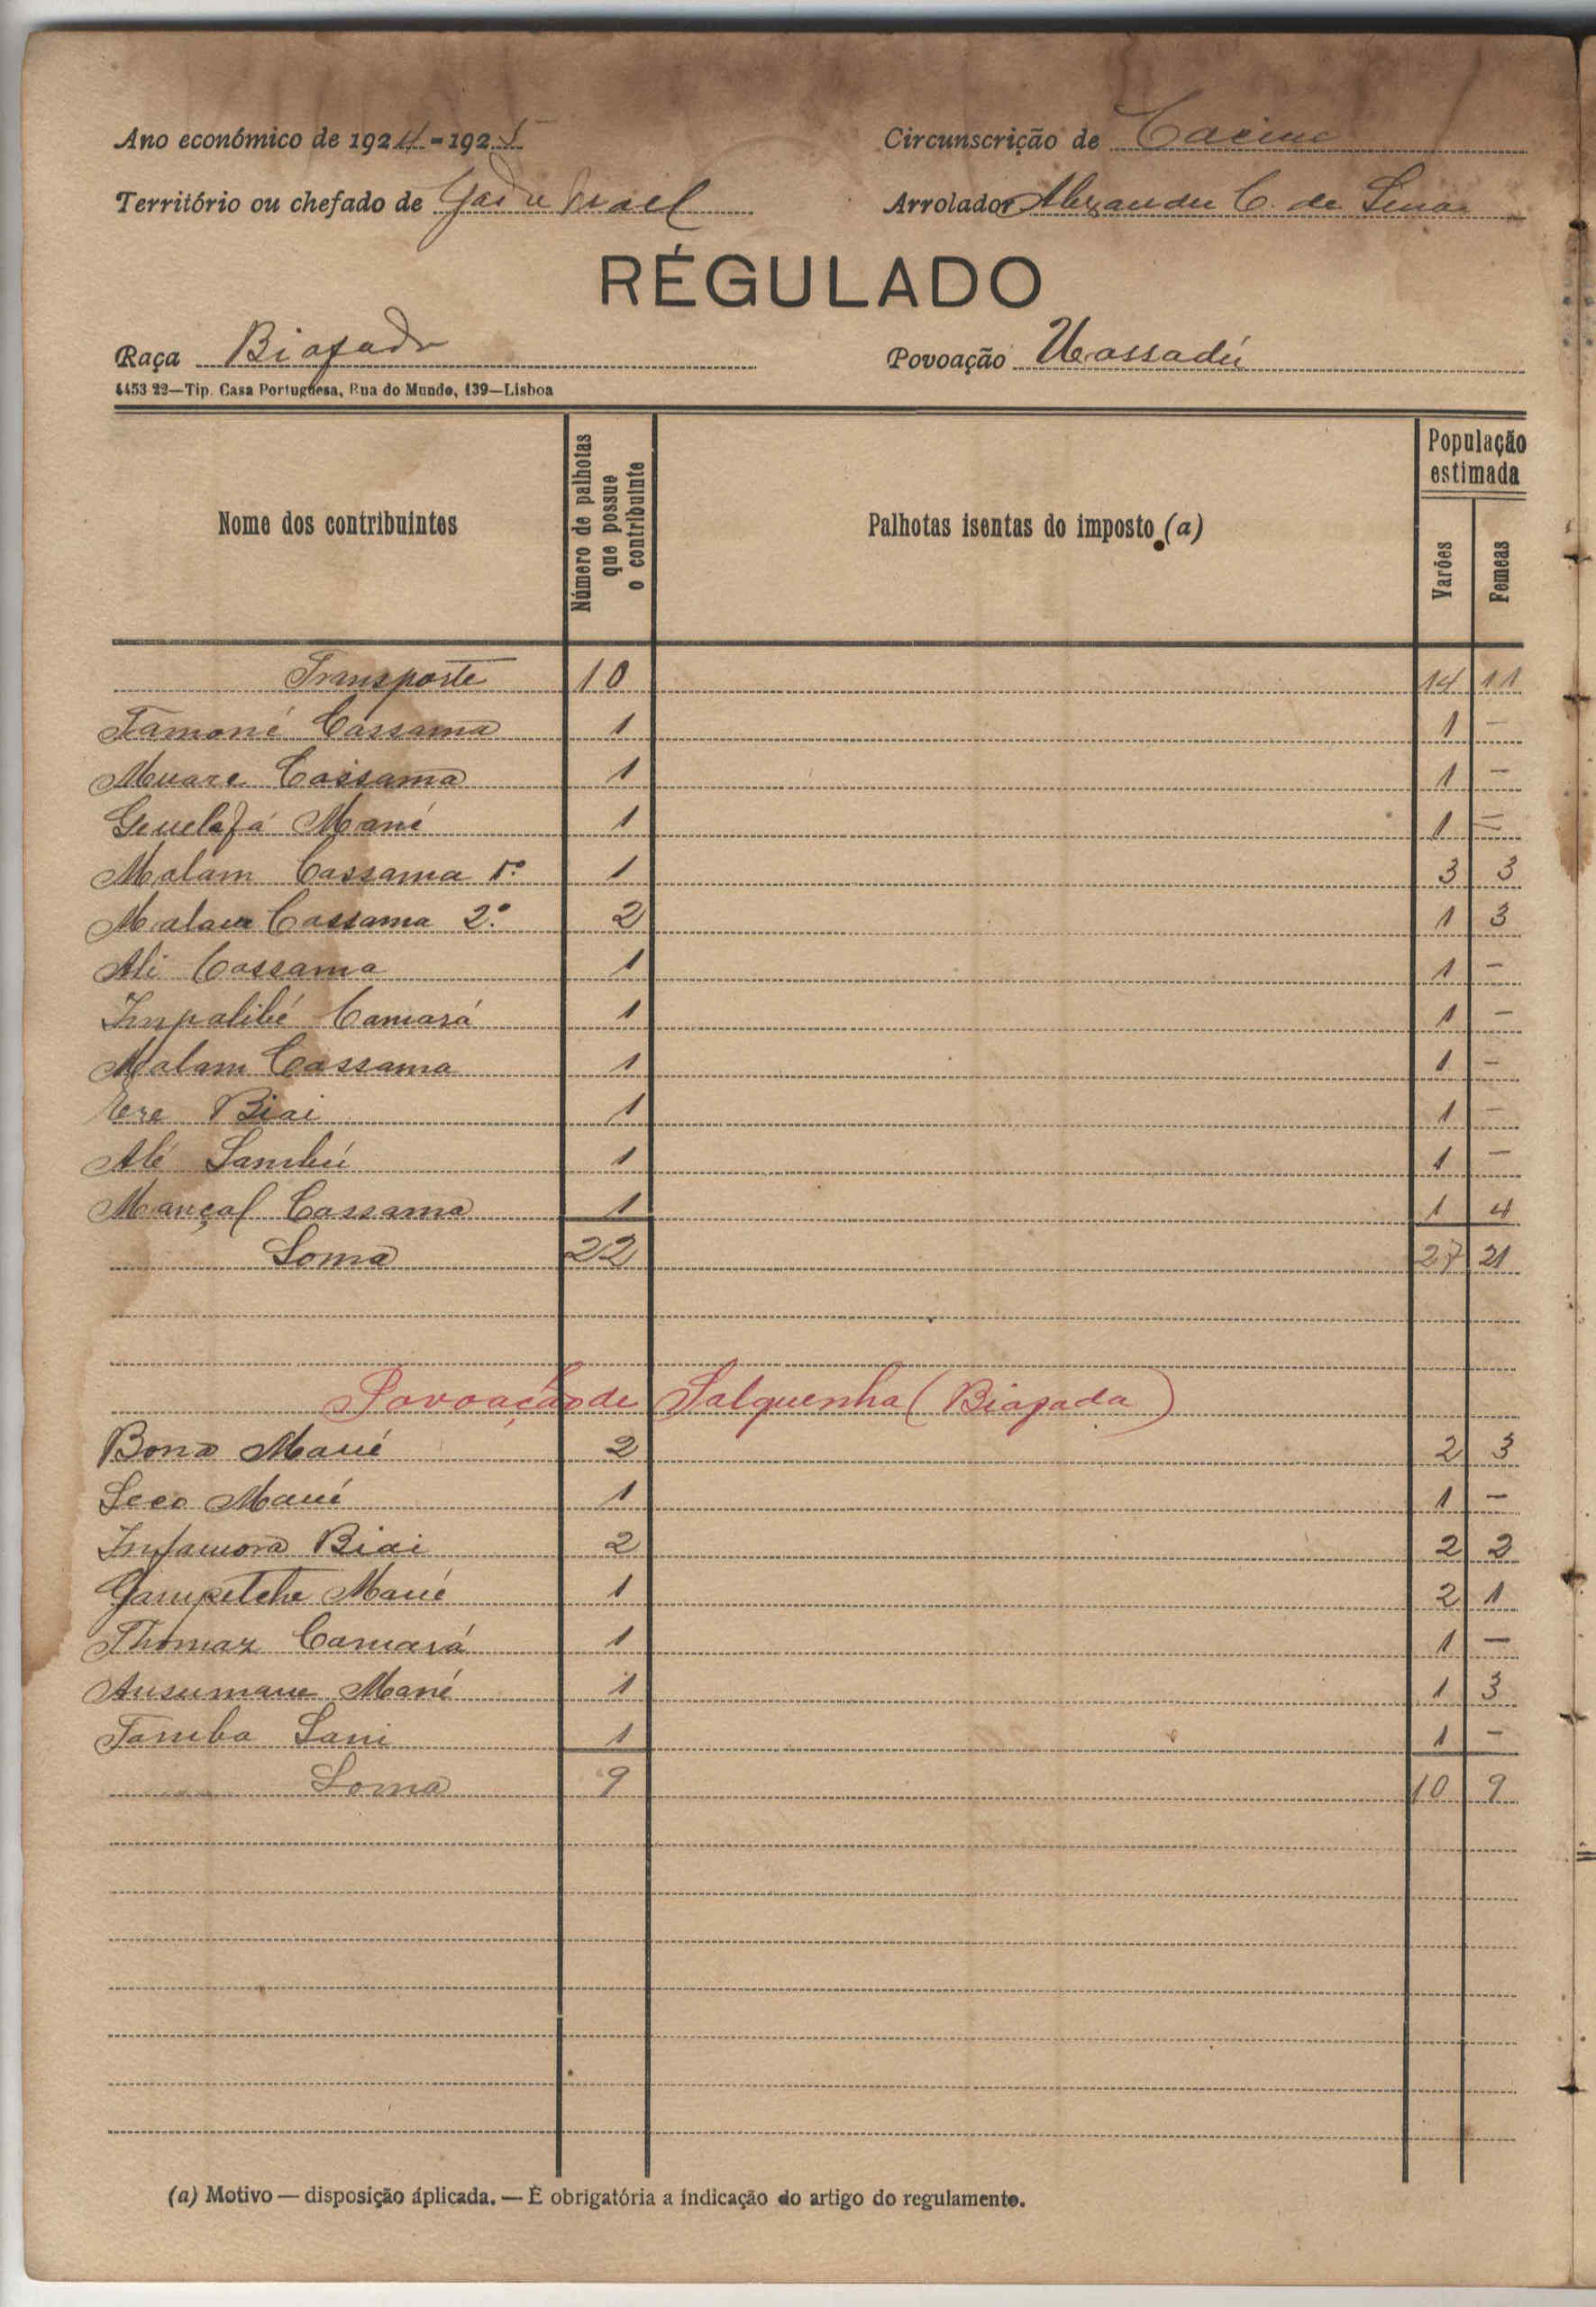 Ano económico de 1924-1925
Circunscrição de Cacine
Território ou chefado de
Arrolador Alexandre C. de Sena
RÉGULADO
Raça Biafada
Povoação Uassadú
4453 22—Tip. Casa Portuguesa, Rua do Mundo, 139—Lisboa
Nome dos contribuintes
Número de palhotas que possue o contribuinte
Palhotas isentas do imposto (a)
População estimada
Varões
Femeas
Transporte 10 14 11
Tamoné Cassama 1 1 —
Muare Cassama 1 1 —
Mané 1 1 —
Malam Cassama 1.º 1 3 3
Malam Cassama 2.º 2 1 3
Ali Cassama 1 1 —
Impalibé Camará 1 1 —
Malam Cassama 1 1 —
Biai 1 1 —
Alé Sambú 1 1 —
Mançal Cassama 1 1 4
Soma 22 27 21
Povoação de Salquenha (Biafada)
Bona Mané 2 2 3
Seco Mané 1 1 —
Infamora Biai 2 2 2
Gampetche Mané 1 2 1
Thomaz Camará 1 1 —
Ansumane Mané 1 1 3
Tamba Sani 1 1 —
Soma 9 10 9
(a) Motivo — disposição áplicada. — É obrigatória a indicação do artigo do regulamento.